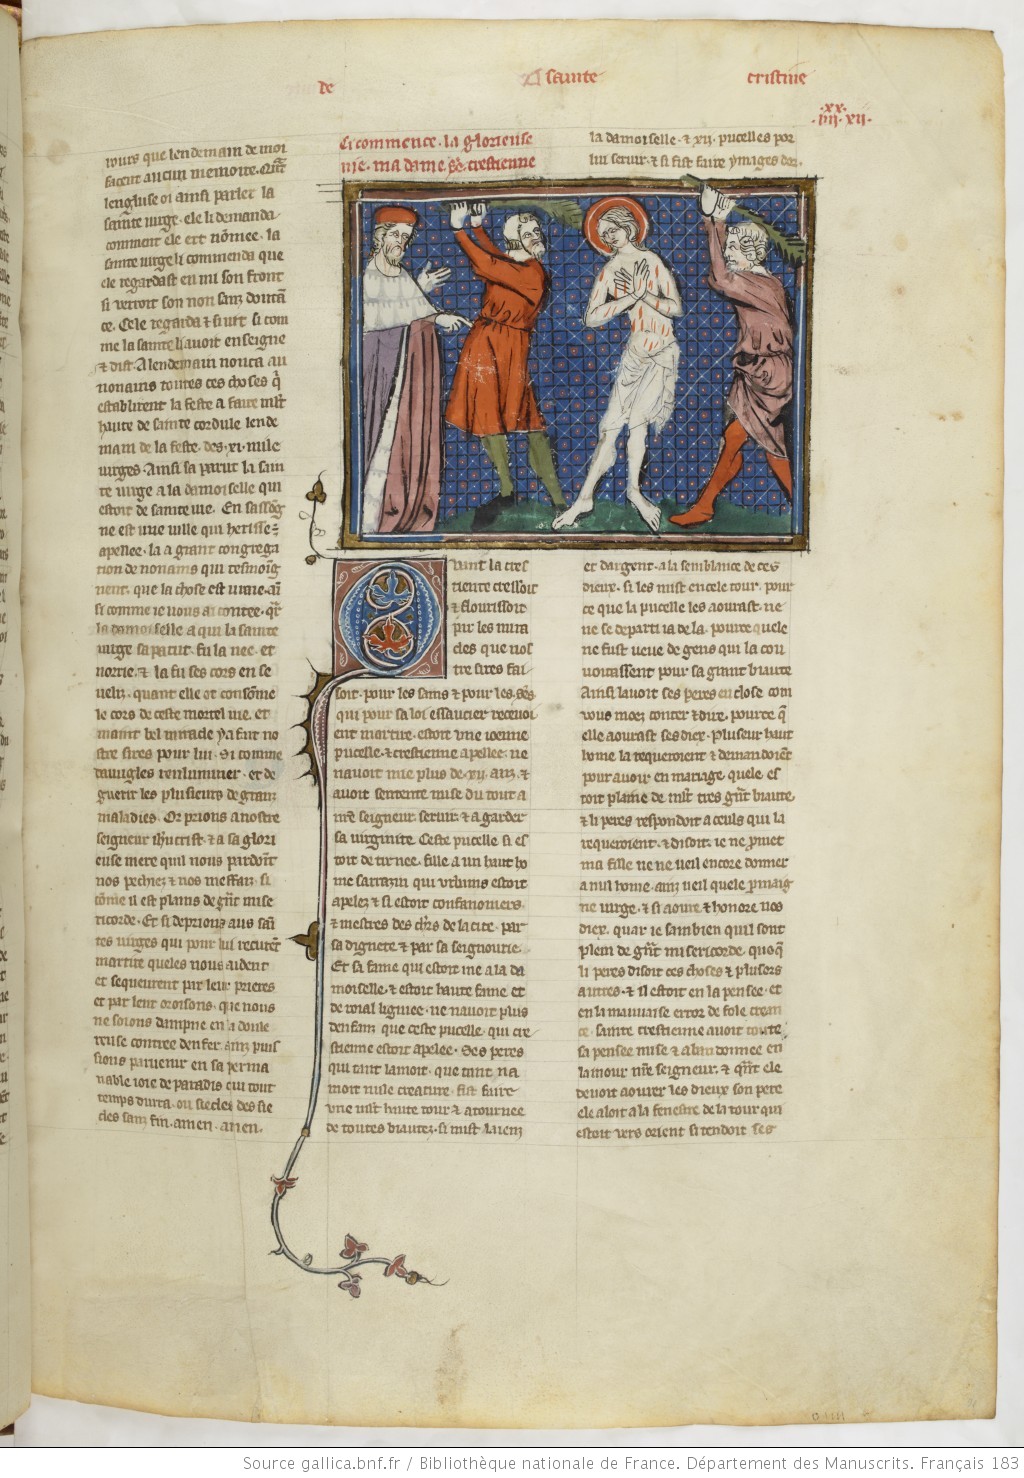 de
sainte
cristine
.xx.
.iiij.xij.
iours que lendemain de moi
facent aucun memoire. Quãt
lengluise oi ainsi parler la
sainte uirge. ele li demanda
comment ele ert nõmee. la
sainte uirge li commenda que
ele regardast en mi son front
si verroit son non sanz doutan
ce. Cele regarda & si uit si com
me la sainte li auoit enseigne
& dist. A lendemain nonca au
nonains toutes ces choses q̃
establirent la feste a faire ml't
haute de sainte cordule lende
main de la feste des .xi. mile
uirges. Ainsi sa parut la sain
te uirge a la damoiselle qui
estoit de sainte uie. En sassõg
ne est une uille qui herisse
apellee. la a grant congrega
tion de nonains qui tesmoig
nent. que la chose est uraie. ai
si comme ie uous ai contee. qr
la damoiselle a qui la sainte
uirge sa parut. fu la nee. et
norrie. & la fu ses cors en se
veliz. quant elle ot consõme
le cors de ceste mortel uie. et
maint bel miracle ya fait no
stre sires pour lui. Si comme
dauugles renluminer. et de
guerir les plusieurs de granz
maladies. Or prions a nostre
seigneur ihucrist. & a sa glori
euse mere quil nous pardoint
nos pechiez & nos meffaiz. si
cõme il est plains de gñt mise
ricorde. Et si deprions aus sain
tes uirges qui pour lui recurẽt
martire queles nous aident
et sequeurent par leur prieres
et par leur oroisons. que nous
ne soions dampne en la doule
reuse contree denfer. ainz puis
sions paruenir en sa perma
nable ioie de paradis cui tout
temps durra. ou siecles des sie
cles sanz fin. amen. amen.
Ci commence. la glorieuse
uie. ma dame. sẽ. crestienne
Quant la cres
tiente cressoit
& flourissoit
par les mira
cles que nos
tre sires fai
soit. pour les sains & pour les. sẽs.
qui pour sa loi essaucier receuoi
ent martire. estoit vne ioenne
pucelle. & crestienne apellee. ne
nauoit mie plus de .xij. anz. &
auoit sentente mise du tout a
nr̃e seigneur seruir. & a garder
sa uirginite. Ceste pucelle si es
toit de tir nee. fille a un haut ho
me sarrazin qui urbains estoit
apelez. & si estoit confanoniers.
& mestres des chr̃s de la cite. par
sa dignete & par sa seignourie.
Et sa fame qui estoit me a la da
moiselle. & estoit haute fame et
de roial ligniee. ne nauoit plus
denfanz que ceste pucelle. qui cre
stienne estoit apelee. Ses peres
qui tant lamoit. que tant na
moit nule creature. fist faire
vne ml't haute tour & atournee
de toutes biautez. si mist laienz
la damoiselle. & xij. pucelles por
lui seruir. & si fist faire ymages dor.
et dargent. a la semblance de ces
diex. si les mist en cele tour. pour
ce que la pucelle les aourast. ne
ne se departi ia de la. pource quele
ne fust veue de gens qui la cou
uoitassent pour sa grant biaute
Ainsi lauoit ses peres enclose com
vous moez conter & dire. pource q̃
elle aourast ses diex. plusieur haut
home la requeroient & demandoiẽt
pour auoir en mariage. quele es
toit plaine de ml't tres gñt biaute.
& li peres respondoit a ceuls qui la
requeroient. & disoit. ie ne promet
ma fille ne ne ueil encore donner
a nul home. ainz ueil quele pmaig
ne uirge. & si aoure & honore nos
diex. quar ie sai bien quil sont
plein de gñt misericorde. qusq̃
li peres disoit ces choses & plusors
autres. & il estoit en la pensee. et
en la mauuaise error de fole crean
ce. sainte crestienne auoit toute
sa pensee mise & abandonnee en
lamour nr̃e seigneur. & qũt ele
deuoit aourer les dieux son pere
ele aloit a la fenestre de la tour qui
estoit vers orient si tendoit ses
Source gallica.bnf.fr / Bibliothèque nationale de France. Département des Manuscrits. Français 183